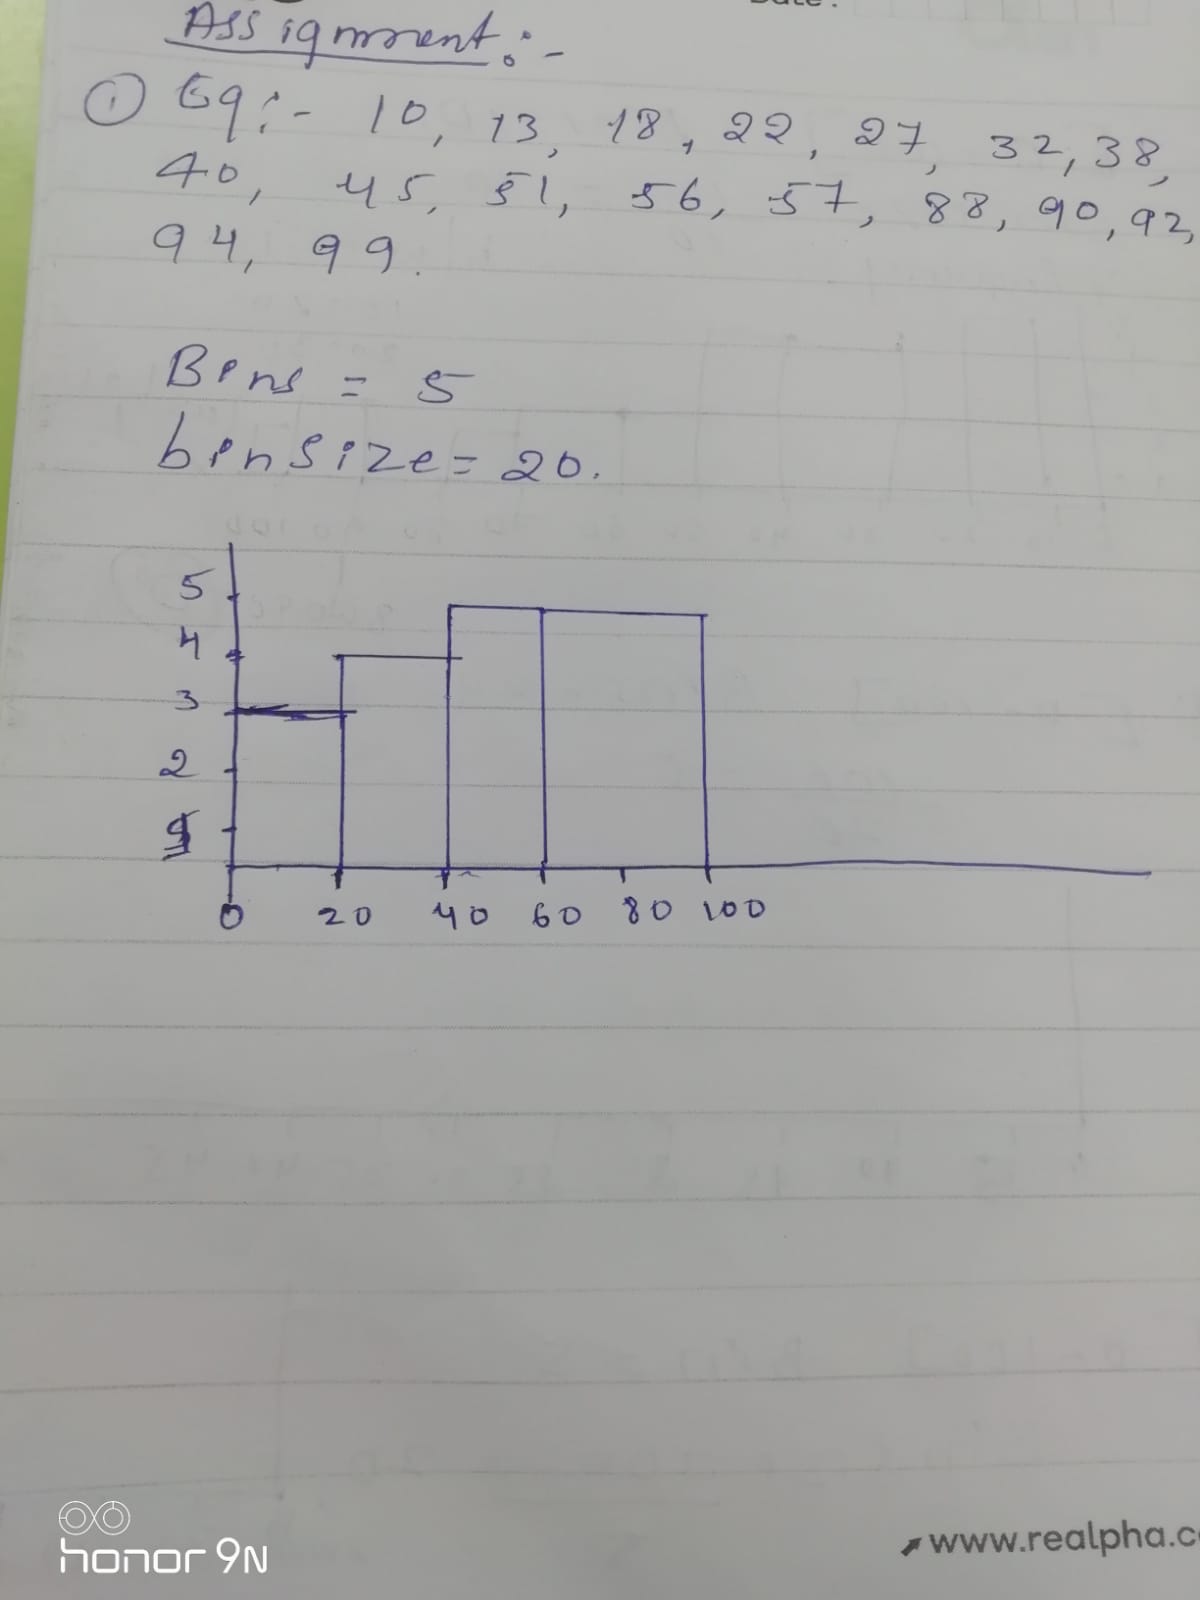 Assignment :-
① Eg :- 10, 13, 18, 22, 27, 32, 38,
40, 45, 51, 56, 57, 88, 90, 92,
94, 99.
Bins = 5
binsize = 20.
5
4
3
2
1
0 20 40 60 80 100
honor 9N
www.realpha.c